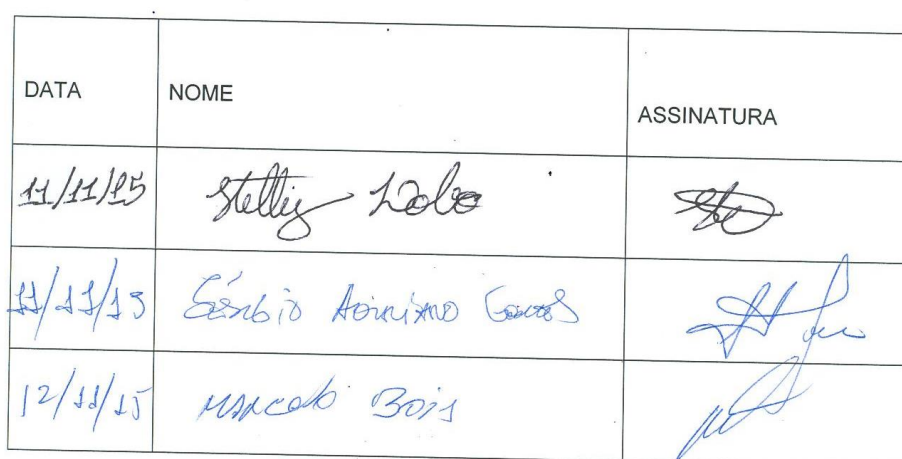 DATA NOME ASSINATURA
11/11/15 Lobo
11/11/15 Sérgio Adriano
12/11/15 Marcelo Bois